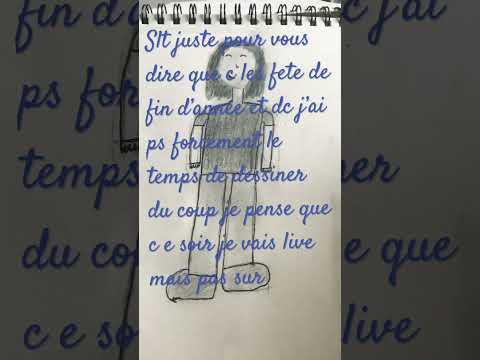 Slt juste pour vous
dire que c les fete de
fin d'année et dc j'ai
ps forcement le
temps de dessiner
du coup je pense que
c e soir je vais live
mais pas sur